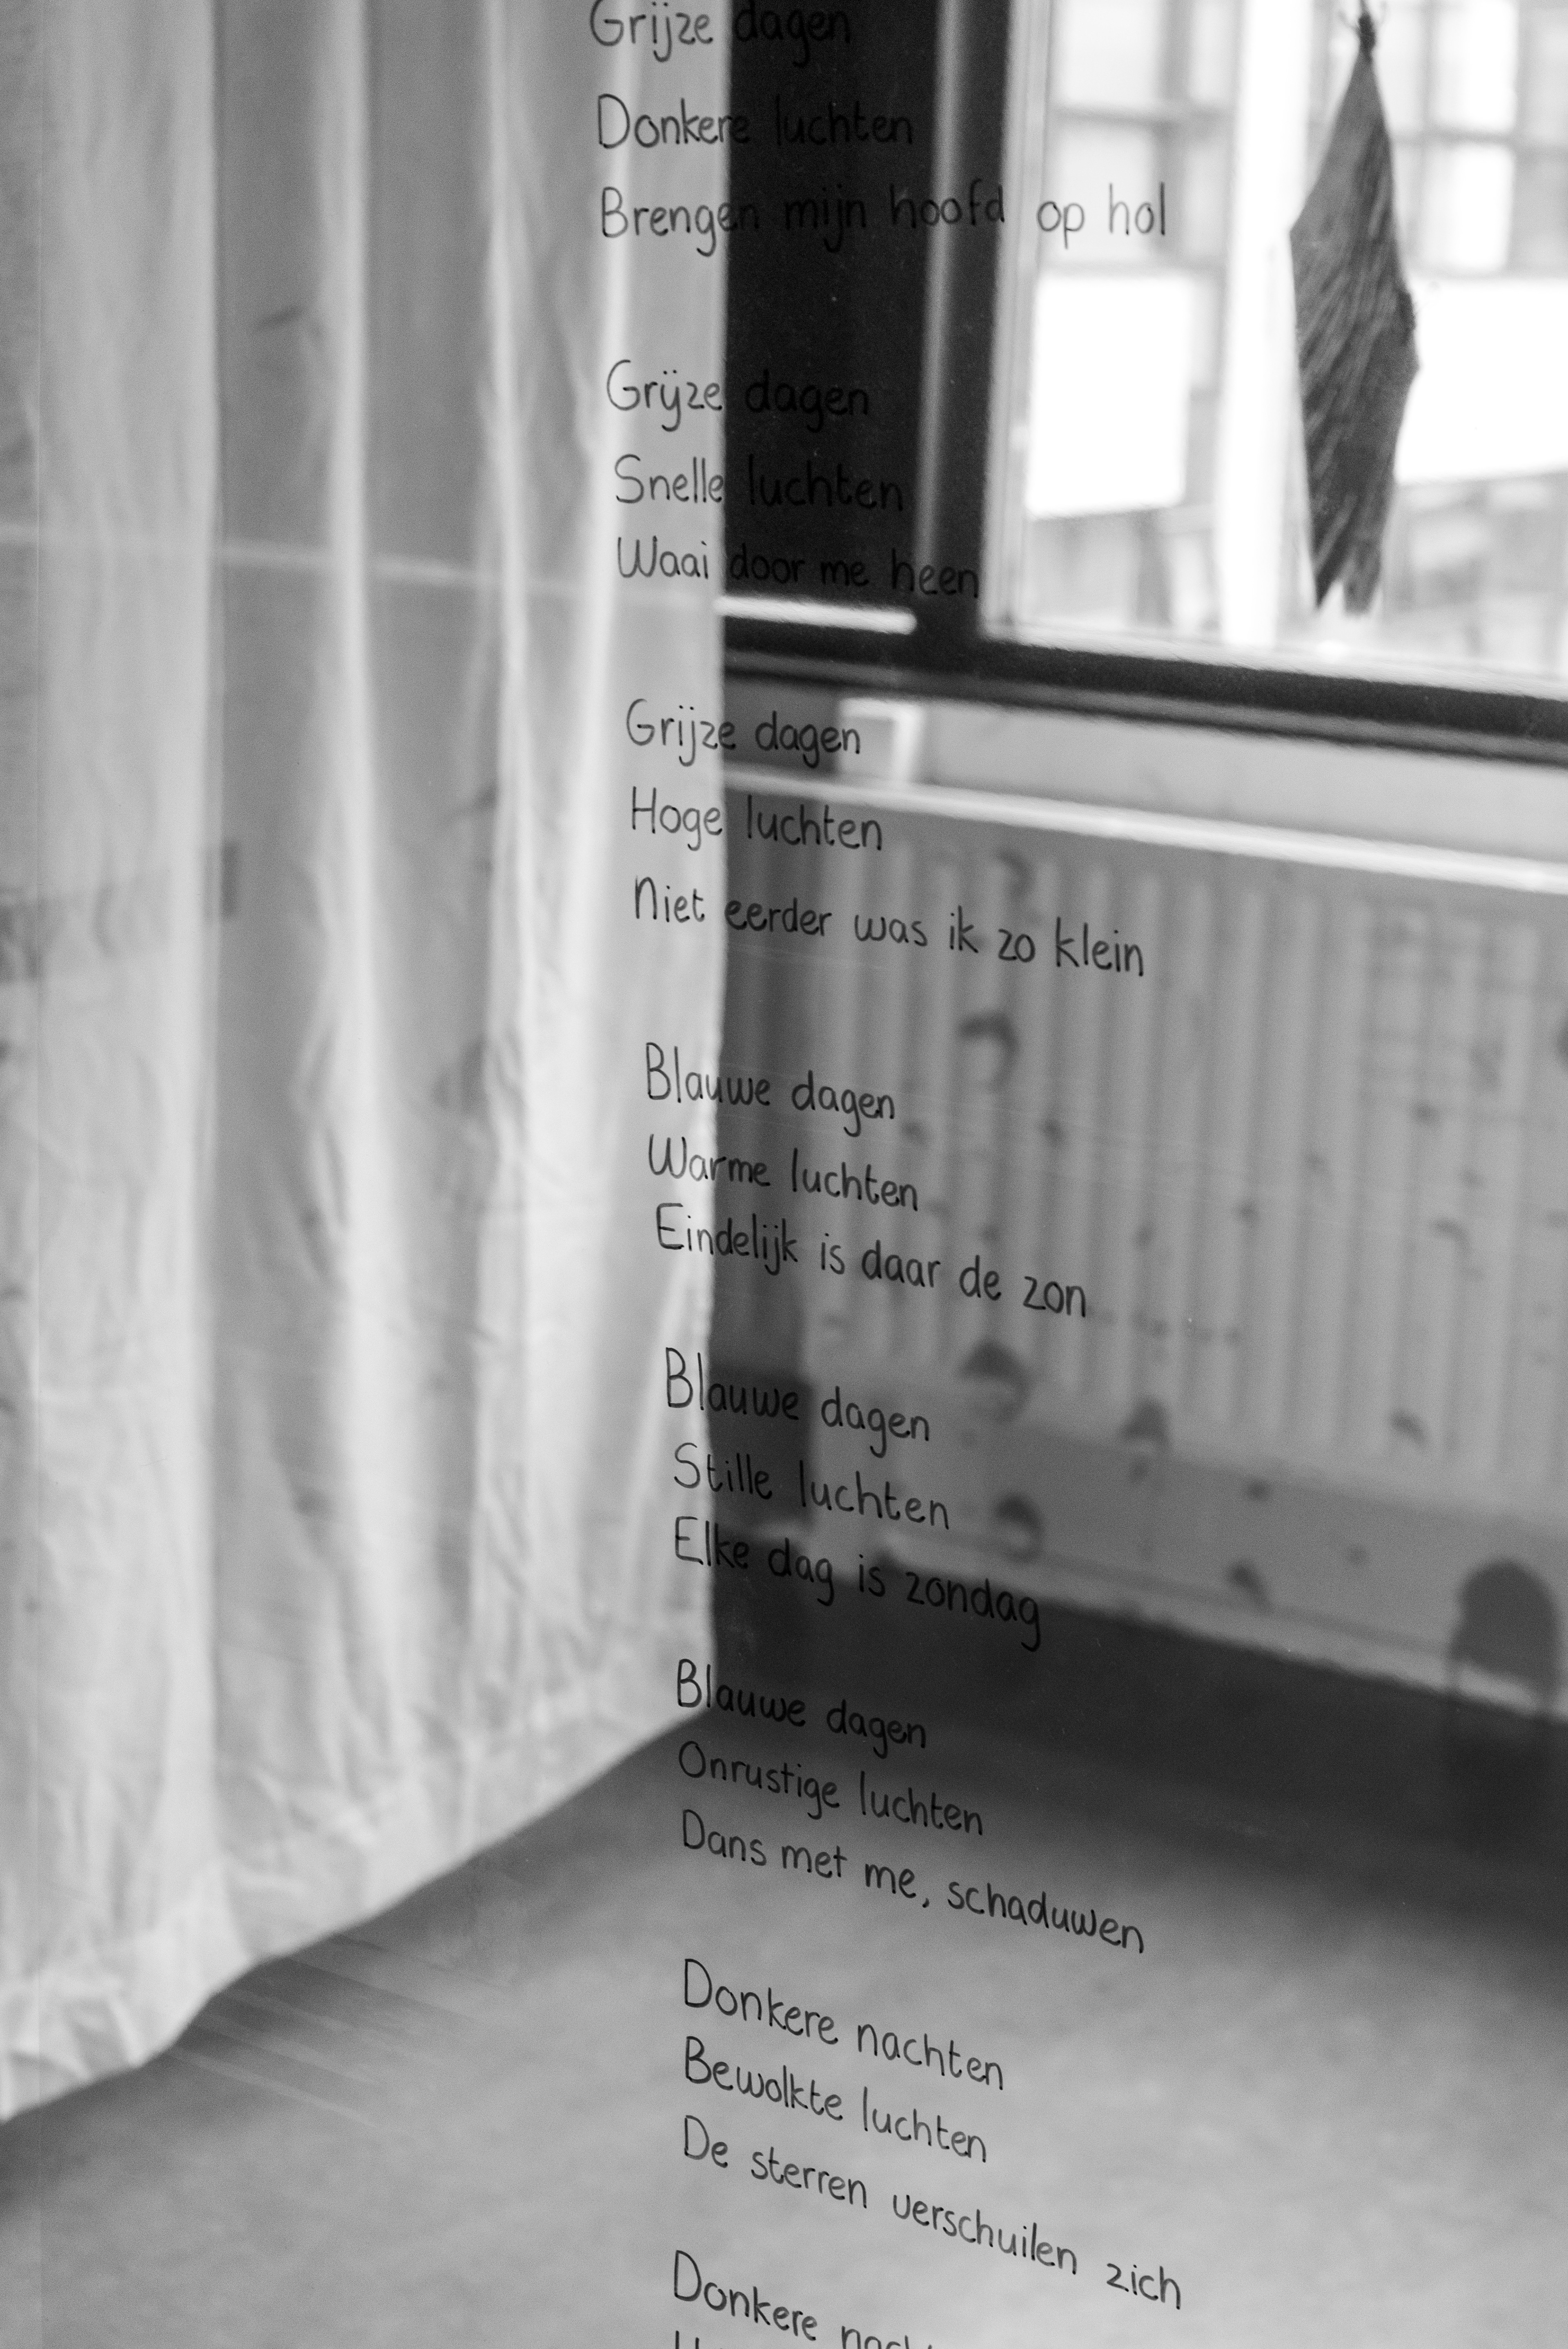 Grijze dagen
Donkere luchten
Brengen mijn hoofd op hol
Grijze dagen
Snelle luchten
Waai door me heen
Grijze dagen
Hoge luchten
Niet eerder was ik zo klein
Blauwe dagen
Warme luchten
Eindelijk is daar de zon
Blauwe dagen
Stille luchten
Elke dag is zondag
Blauwe dagen
Onrustige luchten
Dans met me, schaduwen
Donkere nachten
Bewolkte luchten
De sterren verschuilen zich
Donkere